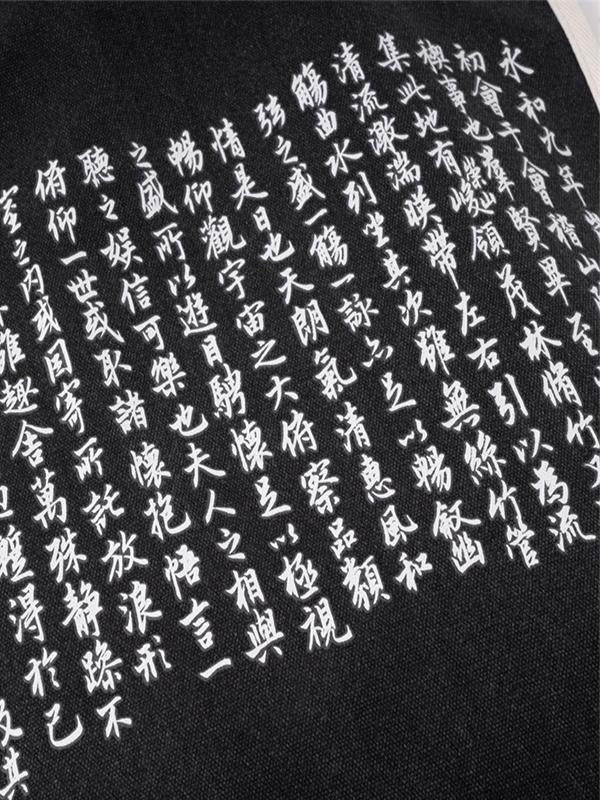 永和九年
初會于會稽山
禊事也羣賢畢至
集此地有崇山峻領茂林脩竹又
清流激湍暎帶左右引以為流
觴曲水列坐其次雖無絲竹管
弦之盛一觴一詠亦足以暢叙幽
情是日也天朗氣清惠風和
暢仰觀宇宙之大俯察品類
之盛所以遊目騁懷足以極視
聽之娛信可樂也夫人之相與
俯仰一世或取諸懷抱悟言一
室之內或因寄所託放浪形
雖趣舍萬殊静躁不
蹔得於己
及其